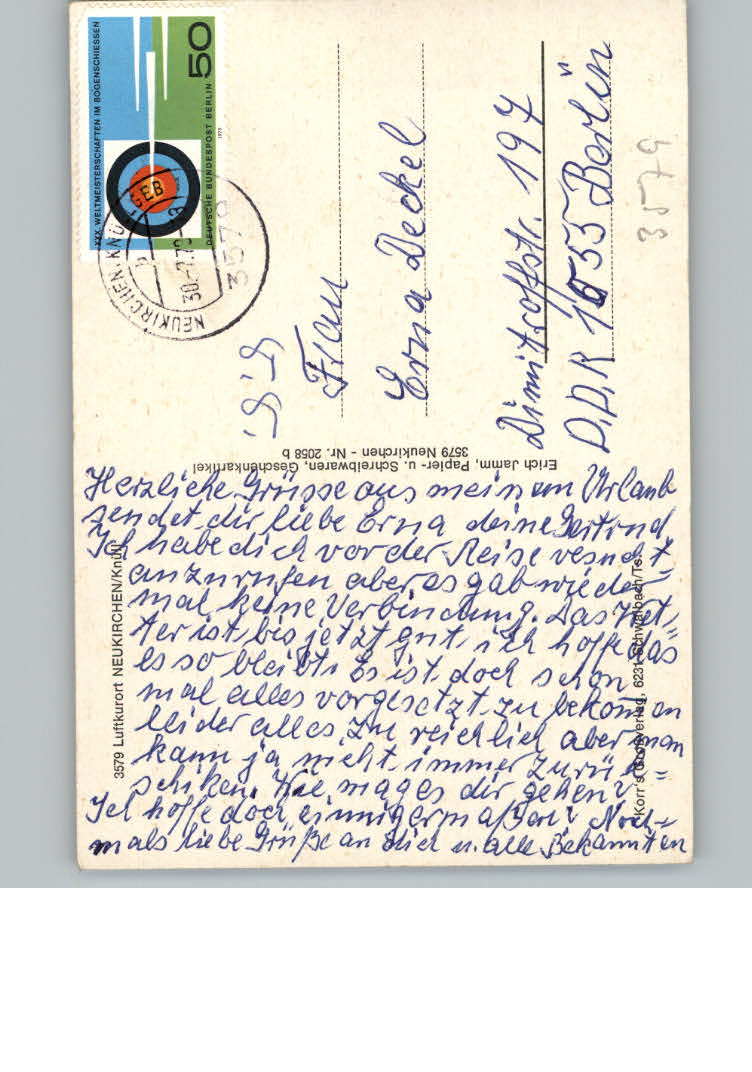 XXX. WELTMEISTERSCHAFTEN IM BOGENSCHIESSEN
50
DEUTSCHE BUNDESPOST BERLIN
1979
NEUKIRCHEN, KNÜLLGEB
30.-7.79
3579
Frau
Erna Deckel
Dimitroffstr. 197
D.D.R 1055 Berlin
3579
Erich Jamm, Papier- u. Schreibwaren, Geschenkartikel
3579 Neukirchen - Nr. 2058 b
3579 Luftkurort NEUKIRCHEN/Knüll
Korr's Großverlag, 6231 Schwalbach/Ts.
Herzliche Grüsse aus meinem Urlaub
sendet dir liebe Erna deine Gertrud
Ich habe dich vor der Reise versucht
anzurufen aber es gab wieder-
mal keine Verbindung. Das Wet=
ter ist bis jetzt gut, ich hoffe das
es so bleibt. Es ist doch schon
mal alles vorgesetzt zu bekommen
leider alles zu reichlich aber man
kann ja nicht immer zurück=
schiken. Wie mag es dir gehen?
Ich hoffe doch einnigermaßen? Noch=
mals liebe Grüße an dich u. alle Bekannten